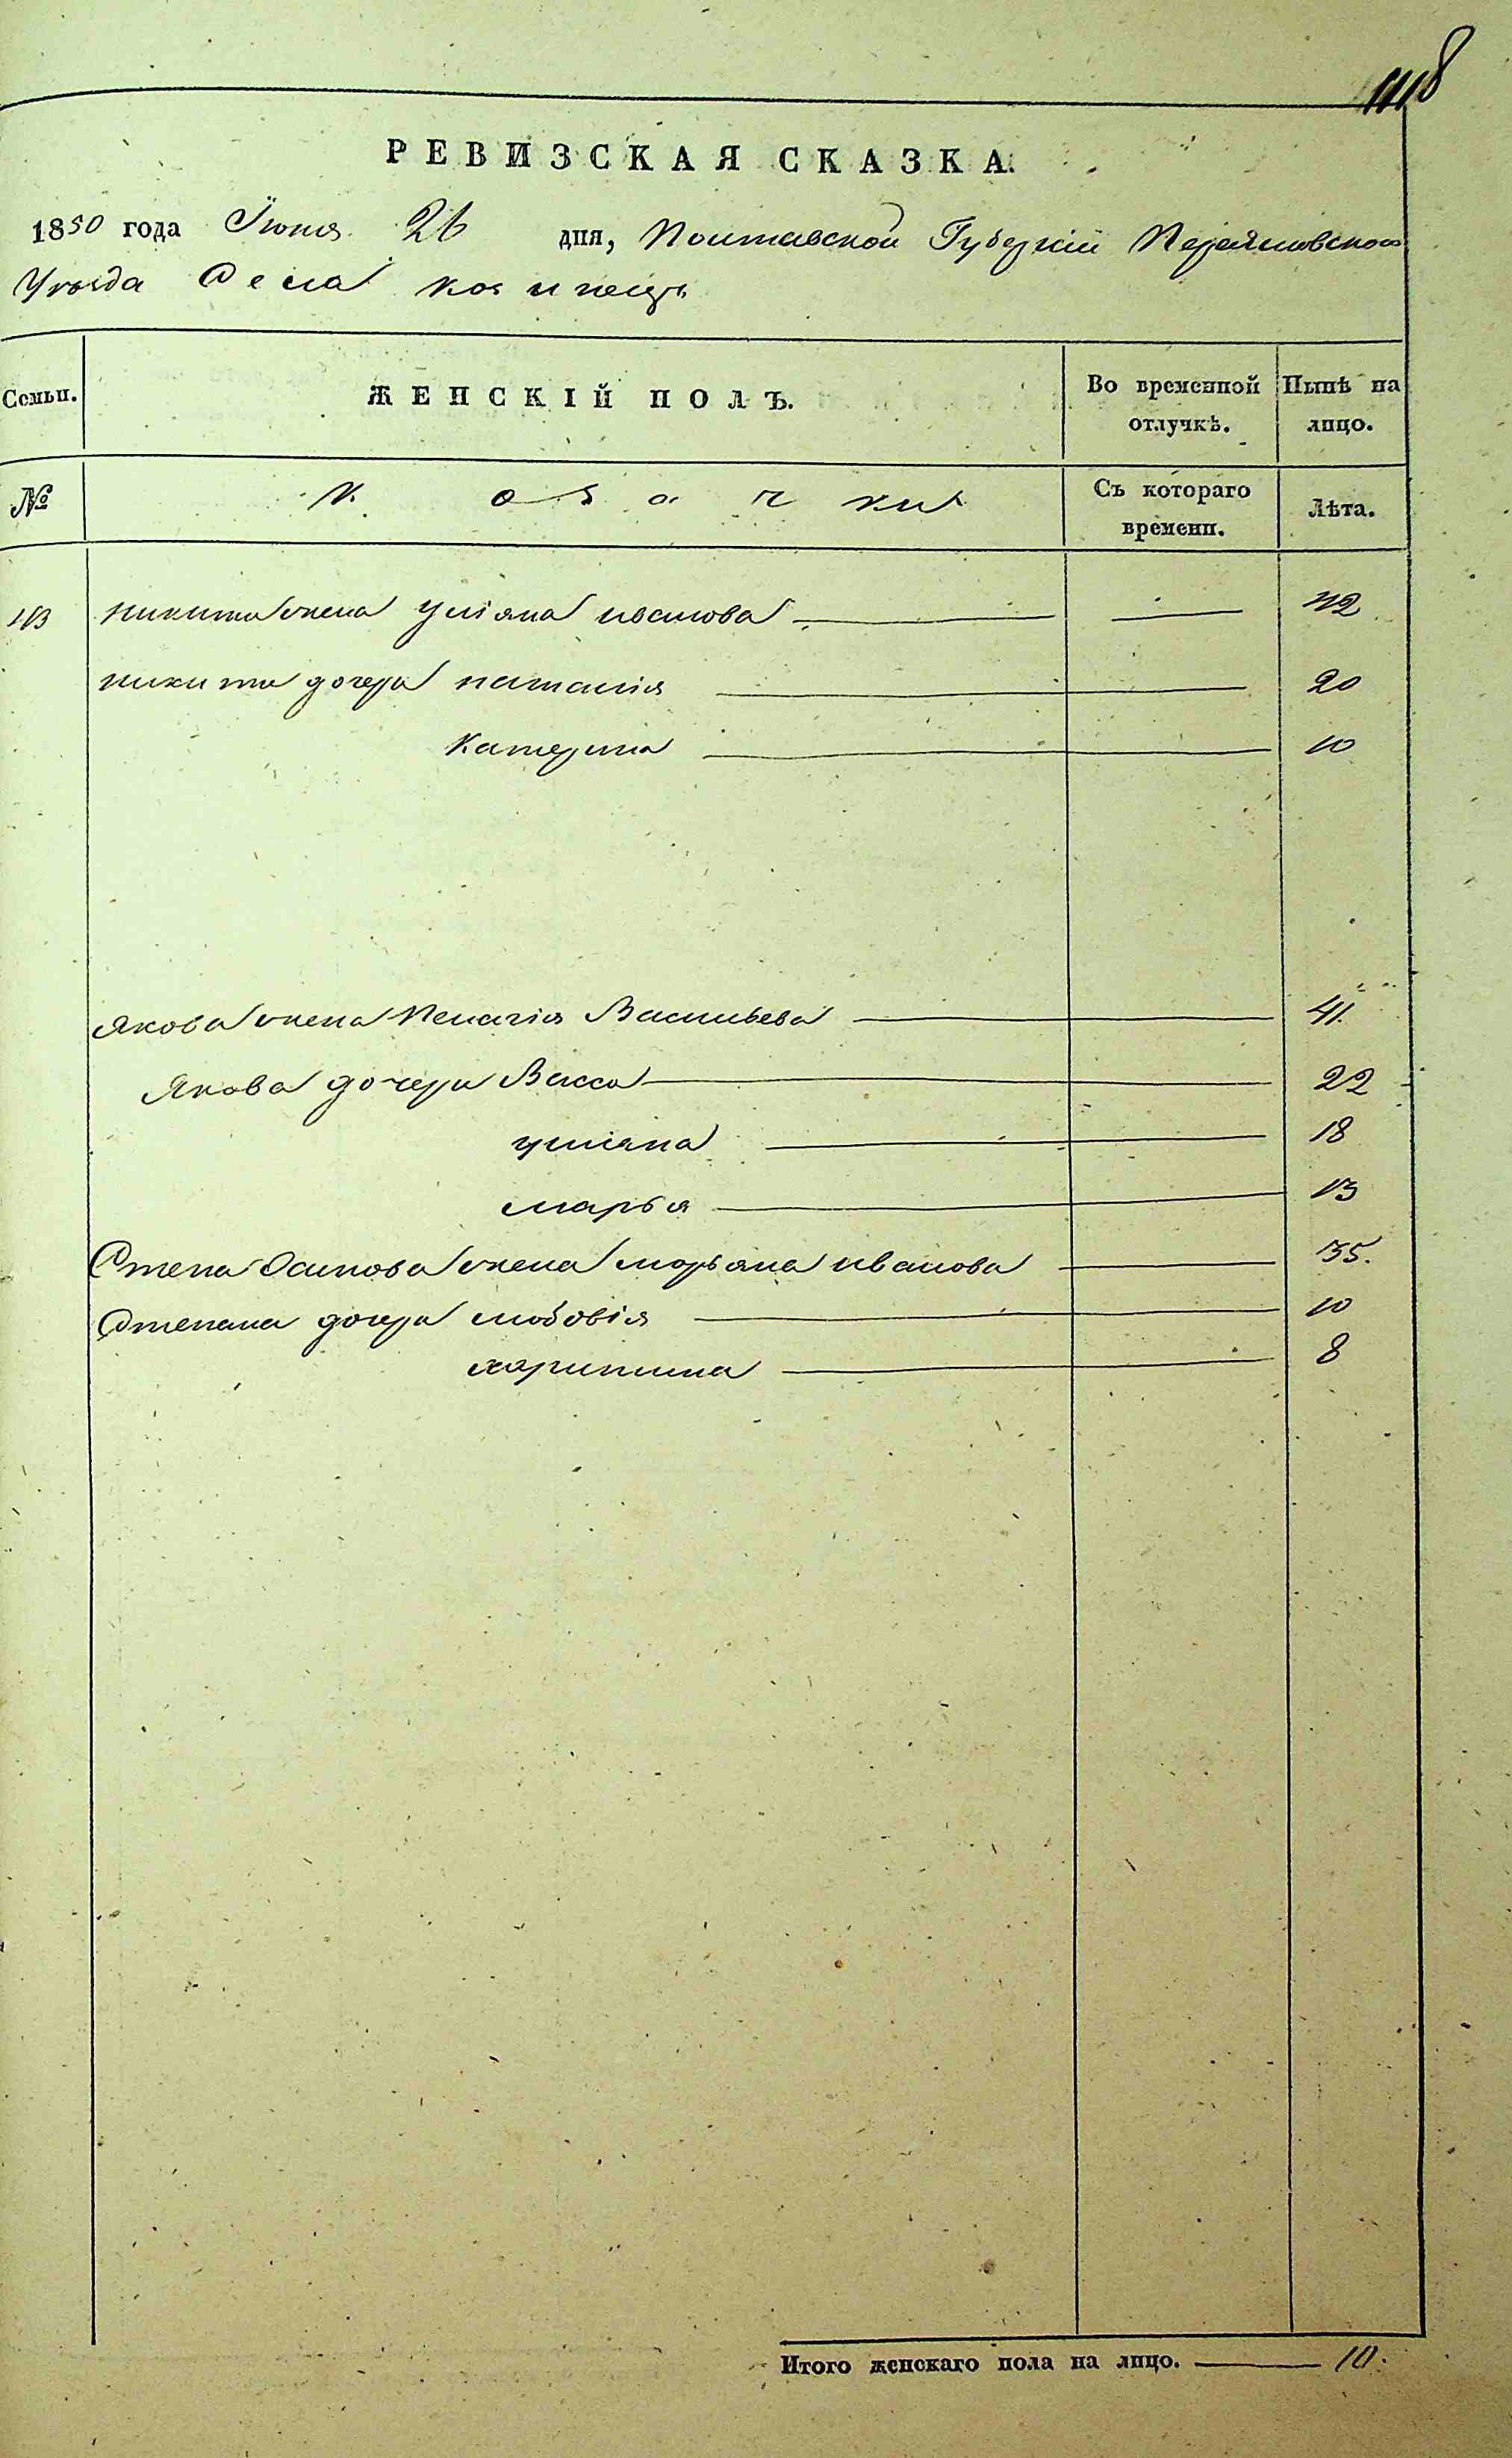 РЕВИЗСКАЯ СКАЗКА.
1850 года Июня 26 дня, Полтавской Губернии Переяславского
Уезда Села
Семьи. ЖЕНСКІЙ ПОЛЪ. Во временной отлучкѣ. Нынѣ на лицо.
№ Козачки Съ котораго времени. Лѣта.
никита жена уліяна иванова 42
никиты дочери наталія 20
Катерина 10
Якова жена Пелагія Васильева 41.
Якова дочери Васса 22
уліяна 18
марья 13
Степа Осипова жена марьяна иванова 35.
Степана дочери любовія 10
харитина 8
Итого женскаго пола на лицо. 10.